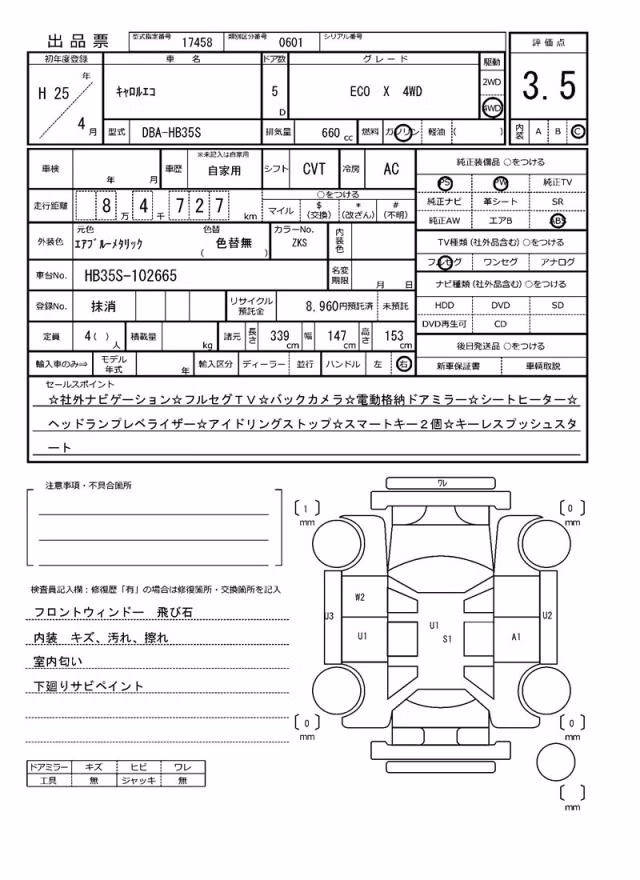 出品票
型式指定番号 17458 類別区分番号 0601 シリアル番号
初年度登録 車 名 ドア数 グレード 駆動 評価点
H 25 年 4 月 ｷｬﾛﾙｴｺ 5 D ECO X 4WD 2WD 4WD 3.5
型式 DBA-HB35S 排気量 660 cc 燃料 ガソリン 軽油 ( ) 内装 A B C
車検 年 月 車歴 ※未記入は自家用 自家用 シフト CVT 冷房 AC 純正装備品 ○をつける
PS PW 純正TV
走行距離 8 万 4 千 7 2 7 km ○をつける
マイル $ (交換) * (改ざん) # (不明)
純正ナビ 革シート SR
純正AW エアB ABS
外装色 元色 ｴｱﾌﾞﾙｰﾒﾀﾘｯｸ 色替 ( 色替無 ) カラーNo. ZKS 内装色
TV種類 (社外品含む) ○をつける
フルセグ ワンセグ アナログ
車台No. HB35S-102665 名変期限 月 日
ナビ種類 (社外品含む) ○をつける
登録No. 抹消 リサイクル預託金 8,960円預託済 未預託
HDD DVD SD
DVD再生可 CD
定員 4( ) 人 積載量 kg 諸元 長さ 339 cm 幅 147 cm 高さ 153 cm
後日発送品 ○をつける
輸入車のみ⇒ モデル年式 年 輸入区分 ディーラー 並行 ハンドル 左 右
新車保証書 車輌取説
セールスポイント
☆社外ナビゲーション☆フルセグＴＶ☆バックカメラ☆電動格納ドアミラー☆シートヒーター☆
ヘッドランプレベライザー☆アイドリングストップ☆スマートキー２個☆キーレスプッシュスタ
ート
注意事項・不具合箇所
検査員記入欄：修復歴「有」の場合は修復箇所・交換箇所を記入
フロントウィンドー 飛び石
内装 キズ、汚れ、擦れ
室内匂い
下廻りサビペイント
ドアミラー キズ ヒビ ワレ
工具 無 ジャッキ 無
ﾜﾚ
[ 1 ] mm
[ 0 ] mm
W2
U3 U1 U1 S1 A1 U2
[ 0 ] mm
[ 0 ] mm
[ ] mm